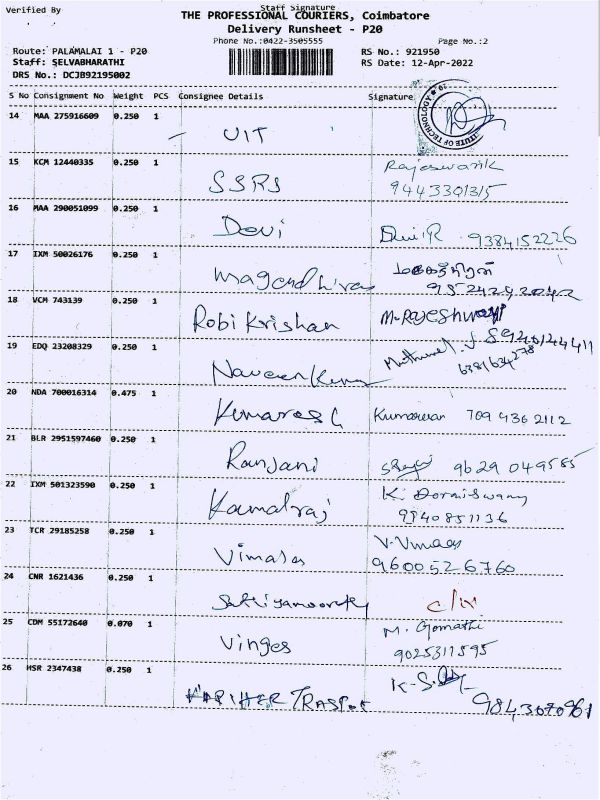 Verified By
Staff Signature
THE PROFESSIONAL COURIERS, Coimbatore
Delivery Runsheet - P20
Phone No.:0422-3505555
Page No.:2
Route: PALAMALAI 1 - P20
RS No.: 921950
Staff: SELVABHARATHI
RS Date: 12-Apr-2022
DRS No.: DCJB92195002
S No Consignment No Weight PCS Consignee Details Signature
14 MAA 275916609 0.250 1 UIT
ITUTE OF TECHNOLOGY
15 KCM 12440335 0.250 1 SSRS
9443301315
16 MAA 290051099 0.250 1 Devi Devi.R 9384152226
17 IXM 50026176 0.250 1
9524242042
18 VCM 743139 0.250 1 Robi Krishan M.Rajeshwari
8946124411
19 EDQ 23208329 0.250 1 Naveen Kumar
6381634278
20 NDA 700016314 0.475 1 Kumaresh Kumaravan 709 436 2112
21 BLR 2951597460 0.250 1 Ranjani 9629 049585
22 IXM 501323590 0.250 1 Kamalraj K. Doraiswamy
9940851136
23 TCR 29185258 0.250 1 Vimalas
9600526760
24 CNR 1621436 0.250 1 C/N
25 CDM 55172640 0.070 1 Vinges M. Gomathi
9025311595
26 HSR 2347438 0.250 1 HARIHER TRASPOT
9843670961